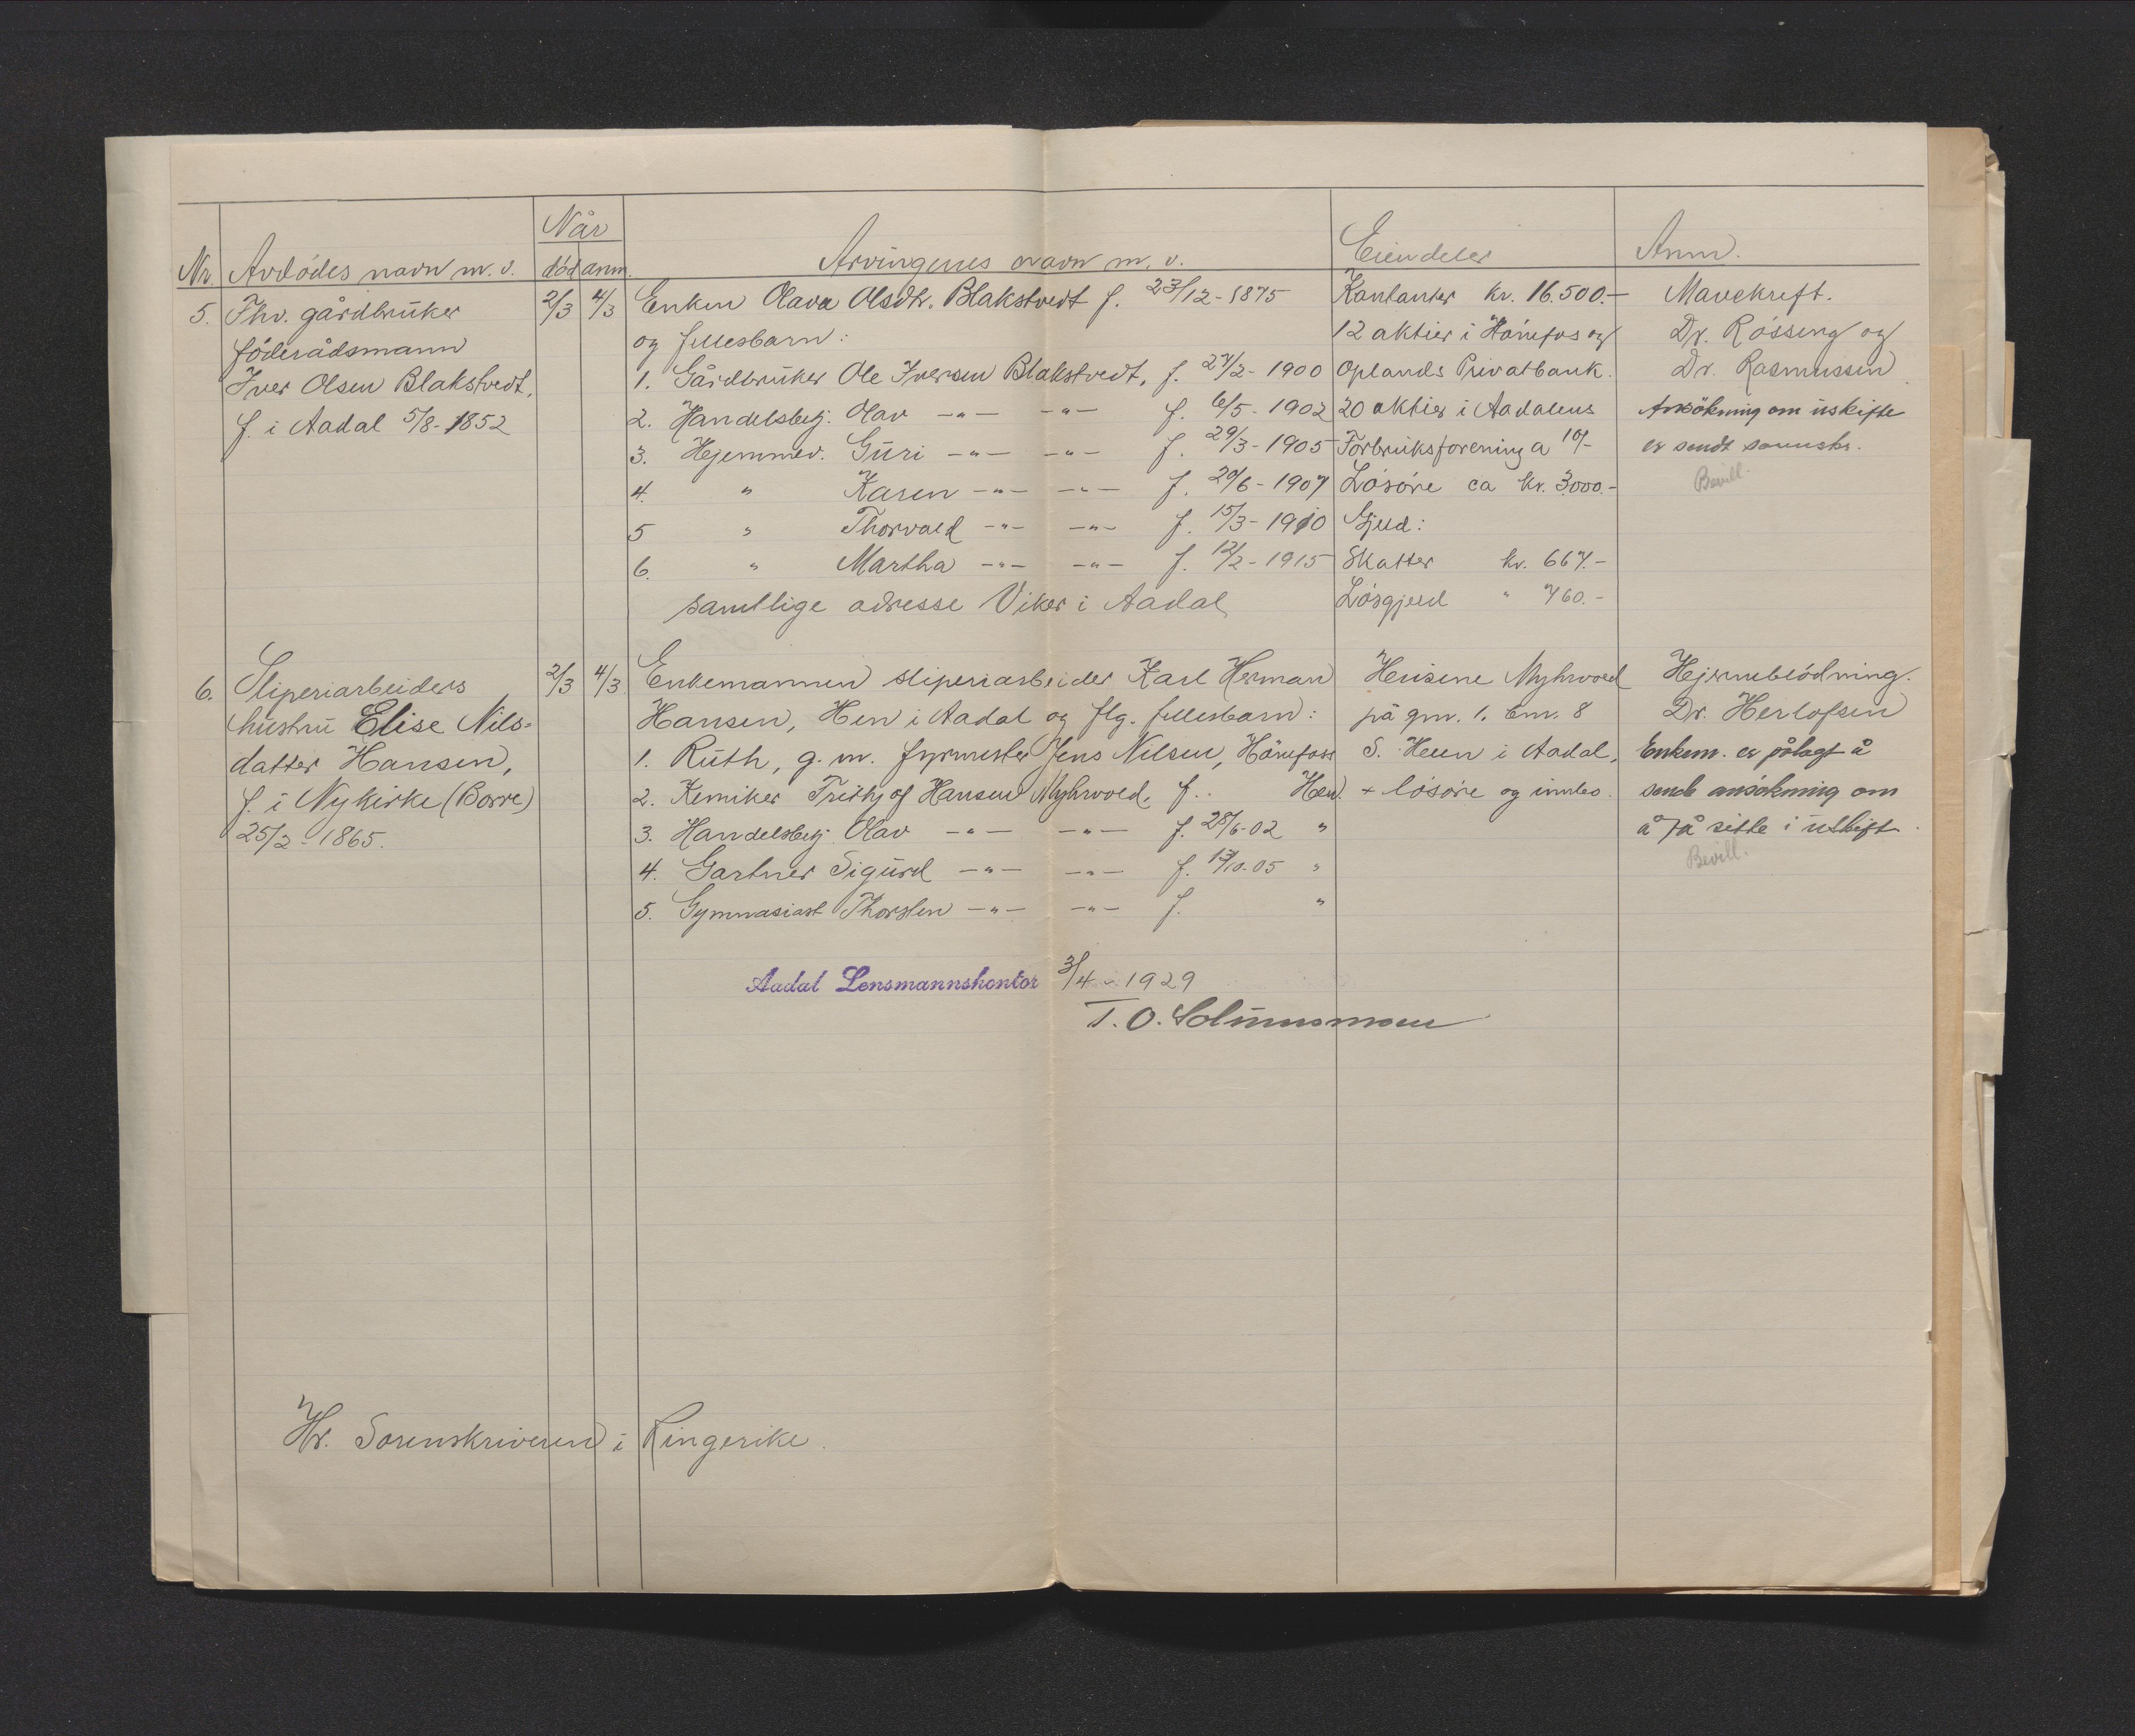 Når
Nr. Avdødes navn m. v. død anm. Arvingenes navn m. v. Eiendeler Anm.
5. Fhv. gårdbruker 2/3 4/3 Enken Olava Olsdtr. Blakstvedt f. 23/12-1875 Kontanter kr. 16.500.- Mavekreft.
föderådsmann og fellesbarn: 12 aktier i Hönefos og Dr. Rössing og
Iver Olsen Blakstvedt, 1. Gårdbruker Ole Iversen Blakstvedt, f. 27/2-1900 Oplands Privatbank. Dr. Rasmussen
f. i Aadal 5/8-1852 2. Handelsbetj. Olav -"- -"- f. 6/5-1902 20 aktier i Aadalens Ansökning om uskifte
3. Hjemmev. Guri -"- -"- f. 29/3-1905 Forbruksforening a 10/- er sendt sorenskr.
4. " Karen -"- -"- f. 20/6-1907 Lösöre ca kr. 3.000.- Bevill.
5 " Thorvald -"- -"- f. 15/3-1910 Gjeld:
6. " Martha -"- -"- f. 12/2-1915 Skatter kr. 667.-
samtlige adresse Viker i Aadal Lösgjeld " 760.-
6. Sliperiarbeiders 2/3 4/3 Enkemannen sliperiarbeider Karl Herman Heisene Myhrvold Hjerneblödning.
hustru Elise Nils- Hansen, Hen i Aadal og flg. fellesbarn: på gnr. 1. bnr. 8 Dr. Herlofsen
datter Hansen, 1. Ruth, g. m. fyrmester Jens Nilsen, Hönefoss S. Heen i Aadal, Enkem. er pålagt å
f. i Nykirke (Borre) 2. Kemiker Frithjof Hansen Myhrvold, f.. Hen. + lösöre og innbo. sende ansökning om
25/2-1865. 3. Handelsbetj. Olav -"- -"- f. 28/6-02 " å få sitte i uskift.
4. Gartner Sigurd -"- -"- f. 13/10-05 " Bevill.
5. Gymnasiast Thorsten -"- -"- f. "
Aadal Lensmannskontor 3/4-1929
T. O.
Hr. Sorenskriveren i Ringerike.